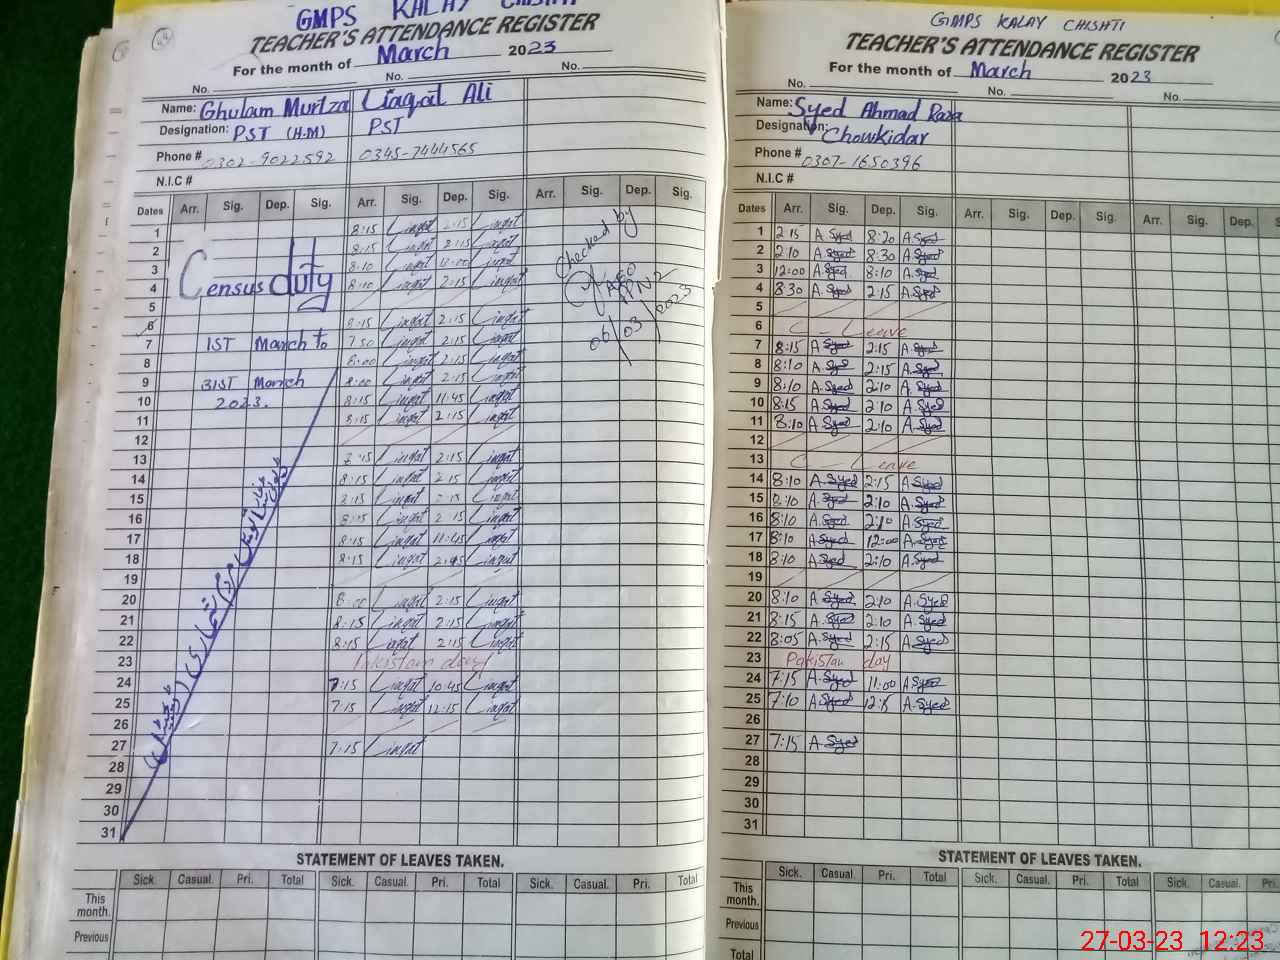 GMPS KALAY CHISHTI
TEACHER'S ATTENDANCE REGISTER
For the month of March 2023
No. No. No.
Name: Ghulam Murtza Liaqat Ali
Designation: PST (H.M) PST
Phone # 0302-9022592 0345-7444565
N.I.C #
Dates Arr. Sig. Dep. Sig. Arr. Sig. Dep. Sig. Arr. Sig. Dep. Sig.
1 8:15 Liaqat 2:15 Liaqat
2 8:15 Liaqat 2:15 Liaqat
3 8:10 Liaqat 12:00 Liaqat
4 8:10 Liaqat 2:15 Liaqat
5
6 8:15 Liaqat 2:15 Liaqat
7 7:50 Liaqat 2:15 Liaqat
8 8:00 Liaqat 2:15 Liaqat
9 8:00 Liaqat 2:15 Liaqat
10 8:15 Liaqat 11:45 Liaqat
11 8:15 Liaqat 2:15 Liaqat
12
13 8:15 Liaqat 2:15 Liaqat
14 8:15 Liaqat 2:15 Liaqat
15 8:15 Liaqat 2:15 Liaqat
16 8:15 Liaqat 2:15 Liaqat
17 8:15 Liaqat 11:45 Liaqat
18 8:15 Liaqat 2:45 Liaqat
19
20 8:00 Liaqat 2:15 Liaqat
21 8:15 Liaqat 2:15 Liaqat
22 8:15 Liaqat 2:15 Liaqat
23 Pakistan day
24 7:15 Liaqat 10:45 Liaqat
25 7:15 Liaqat 12:15 Liaqat
26
27 7:15 Liaqat
28
29
30
31
Census duty
1ST March to
31ST March
2023.
Checked by
AEO
06/03/2023
STATEMENT OF LEAVES TAKEN.
Sick. Casual. Pri. Total Sick. Casual. Pri. Total Sick. Casual. Pri. Total
This month.
Previous
GMPS KALAY CHISHTI
TEACHER'S ATTENDANCE REGISTER
For the month of March 2023
No. No. No.
Name: Syed Ahmad Raza
Designation: Chowkidar
Phone # 0307-1650396
N.I.C #
Dates Arr. Sig. Dep. Sig. Arr. Sig. Dep. Sig. Arr. Sig. Dep.
1 2:15 A.Syed 8:20 A.Syed
2 2:10 A.Syed 8:30 A.Syed
3 12:00 A.Syed 8:10 A.Syed
4 8:30 A.Syed 2:15 A.Syed
5
6 C - Leave
7 8:15 A.Syed 2:15 A.Syed
8 8:10 A.Syed 2:15 A.Syed
9 8:10 A.Syed 2:10 A.Syed
10 8:15 A.Syed 2:10 A.Syed
11 8:10 A.Syed 2:10 A.Syed
12
13 C Leave
14 8:10 A.Syed 2:15 A.Syed
15 8:10 A.Syed 2:10 A.Syed
16 8:10 A.Syed 2:10 A.Syed
17 8:10 A.Syed 12:00 A.Syed
18 8:10 A.Syed 2:10 A.Syed
19
20 8:10 A.Syed 2:10 A.Syed
21 8:15 A.Syed 2:10 A.Syed
22 8:05 A.Syed 2:15 A.Syed
23 Pakistan day
24 7:15 A.Syed 11:00 A.Syed
25 7:10 A.Syed A.Syed
26
27 7:15 A.Syed
28
29
30
31
STATEMENT OF LEAVES TAKEN.
Sick. Casual. Pri. Total Sick. Casual. Pri. Total Sick. Casual. Pri.
This month.
Previous
Total
27-03-23 12:23